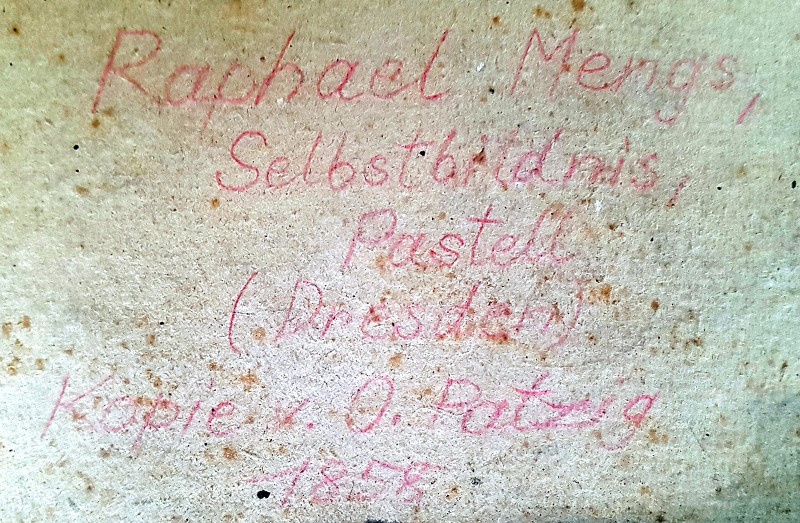 Raphael Mengs,
Selbstbildnis,
Pastell
(Dresden)
Kopie v. O. Patzig
1858